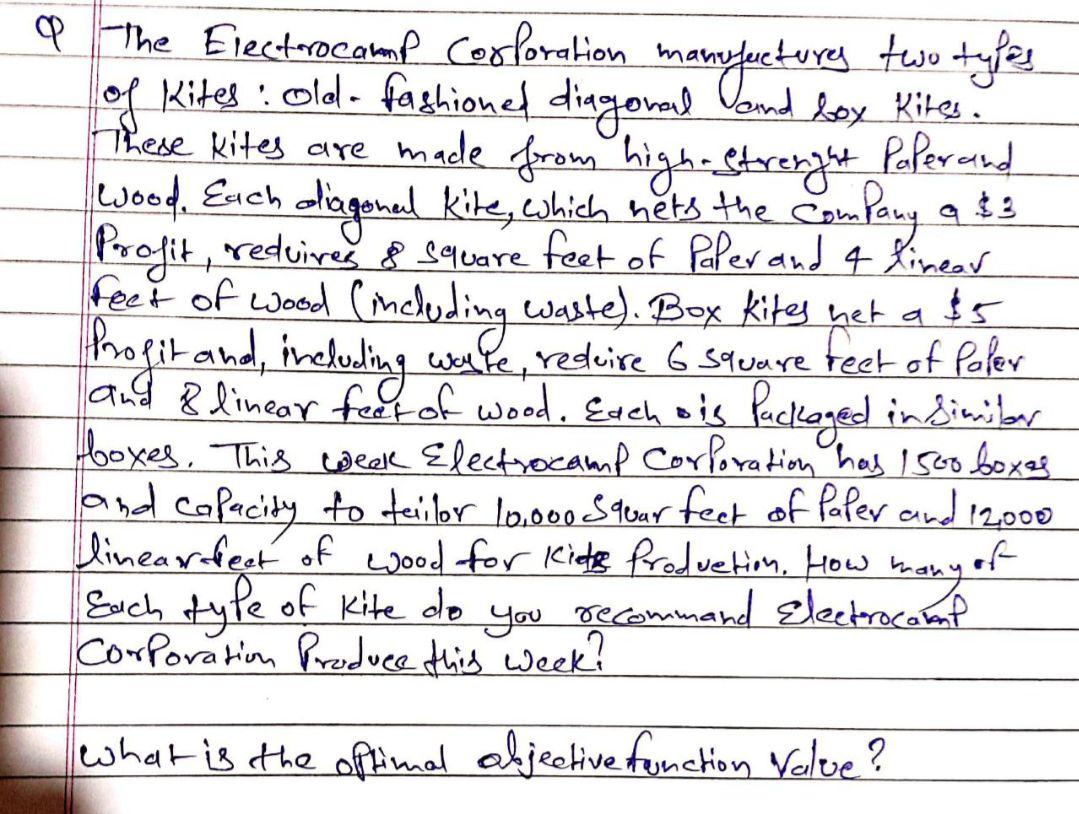 Q The Electrocamp Corporation manufactures two types
of Kites : old-fashioned diagonal and box Kites.
These Kites are made from high-strenght Paper and
wood. Each diagonal kite, which nets the company a $3
Profit, reduires 8 square feet of Paper and 4 linear
feet of wood (including waste). Box kites net a $5
Profit and, including waste, reduire 6 square feet of Paper
and 8 linear feet of wood. Each is Packaged in similar
boxes. This week Electrocamp Corporation has 1500 boxes
and capacity to teilor 10,000 squar feet of Paper and 12,000
linear feet of wood for kite Production. How many of
Each type of kite do you recommand Electrocamp
Corporation Produce this week?
what is the optimal objective function value?